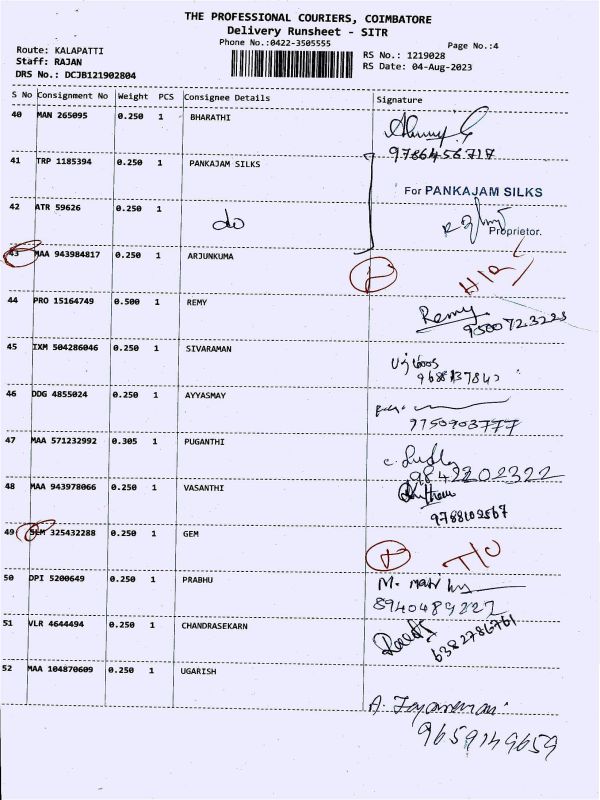 THE PROFESSIONAL COURIERS, COIMBATORE
Delivery Runsheet - SITR
Phone No.:0422-3505555
Page No.:4
Route: KALAPATTI
RS No.: 1219028
Staff: RAJAN
RS Date: 04-Aug-2023
DRS No.: DCJB121902804
S No Consignment No Weight PCS Consignee Details Signature
40 MAN 265095 0.250 1 BHARATHI
9786456717
41 TRP 1185394 0.250 1 PANKAJAM SILKS
For PANKAJAM SILKS
42 ATR 59626 0.250 1
do
Proprietor.
43 MAA 943984817 0.250 1 ARJUNKUMA
44 PRO 15164749 0.500 1 REMY
Remy
9500723223
45 IXM 504286046 0.250 1 SIVARAMAN
46 DDG 4855024 0.250 1 AYYASMAY
9750903777
47 MAA 571232992 0.305 1 PUGANTHI
9842202322
48 MAA 943978066 0.250 1 VASANTHI
9788102567
49 SLM 325432288 0.250 1 GEM
50 DPI 5200649 0.250 1 PRABHU
8940489222
51 VLR 4644494 0.250 1 CHANDRASEKARN
6382786761
52 MAA 104870609 0.250 1 UGARISH
9659149659